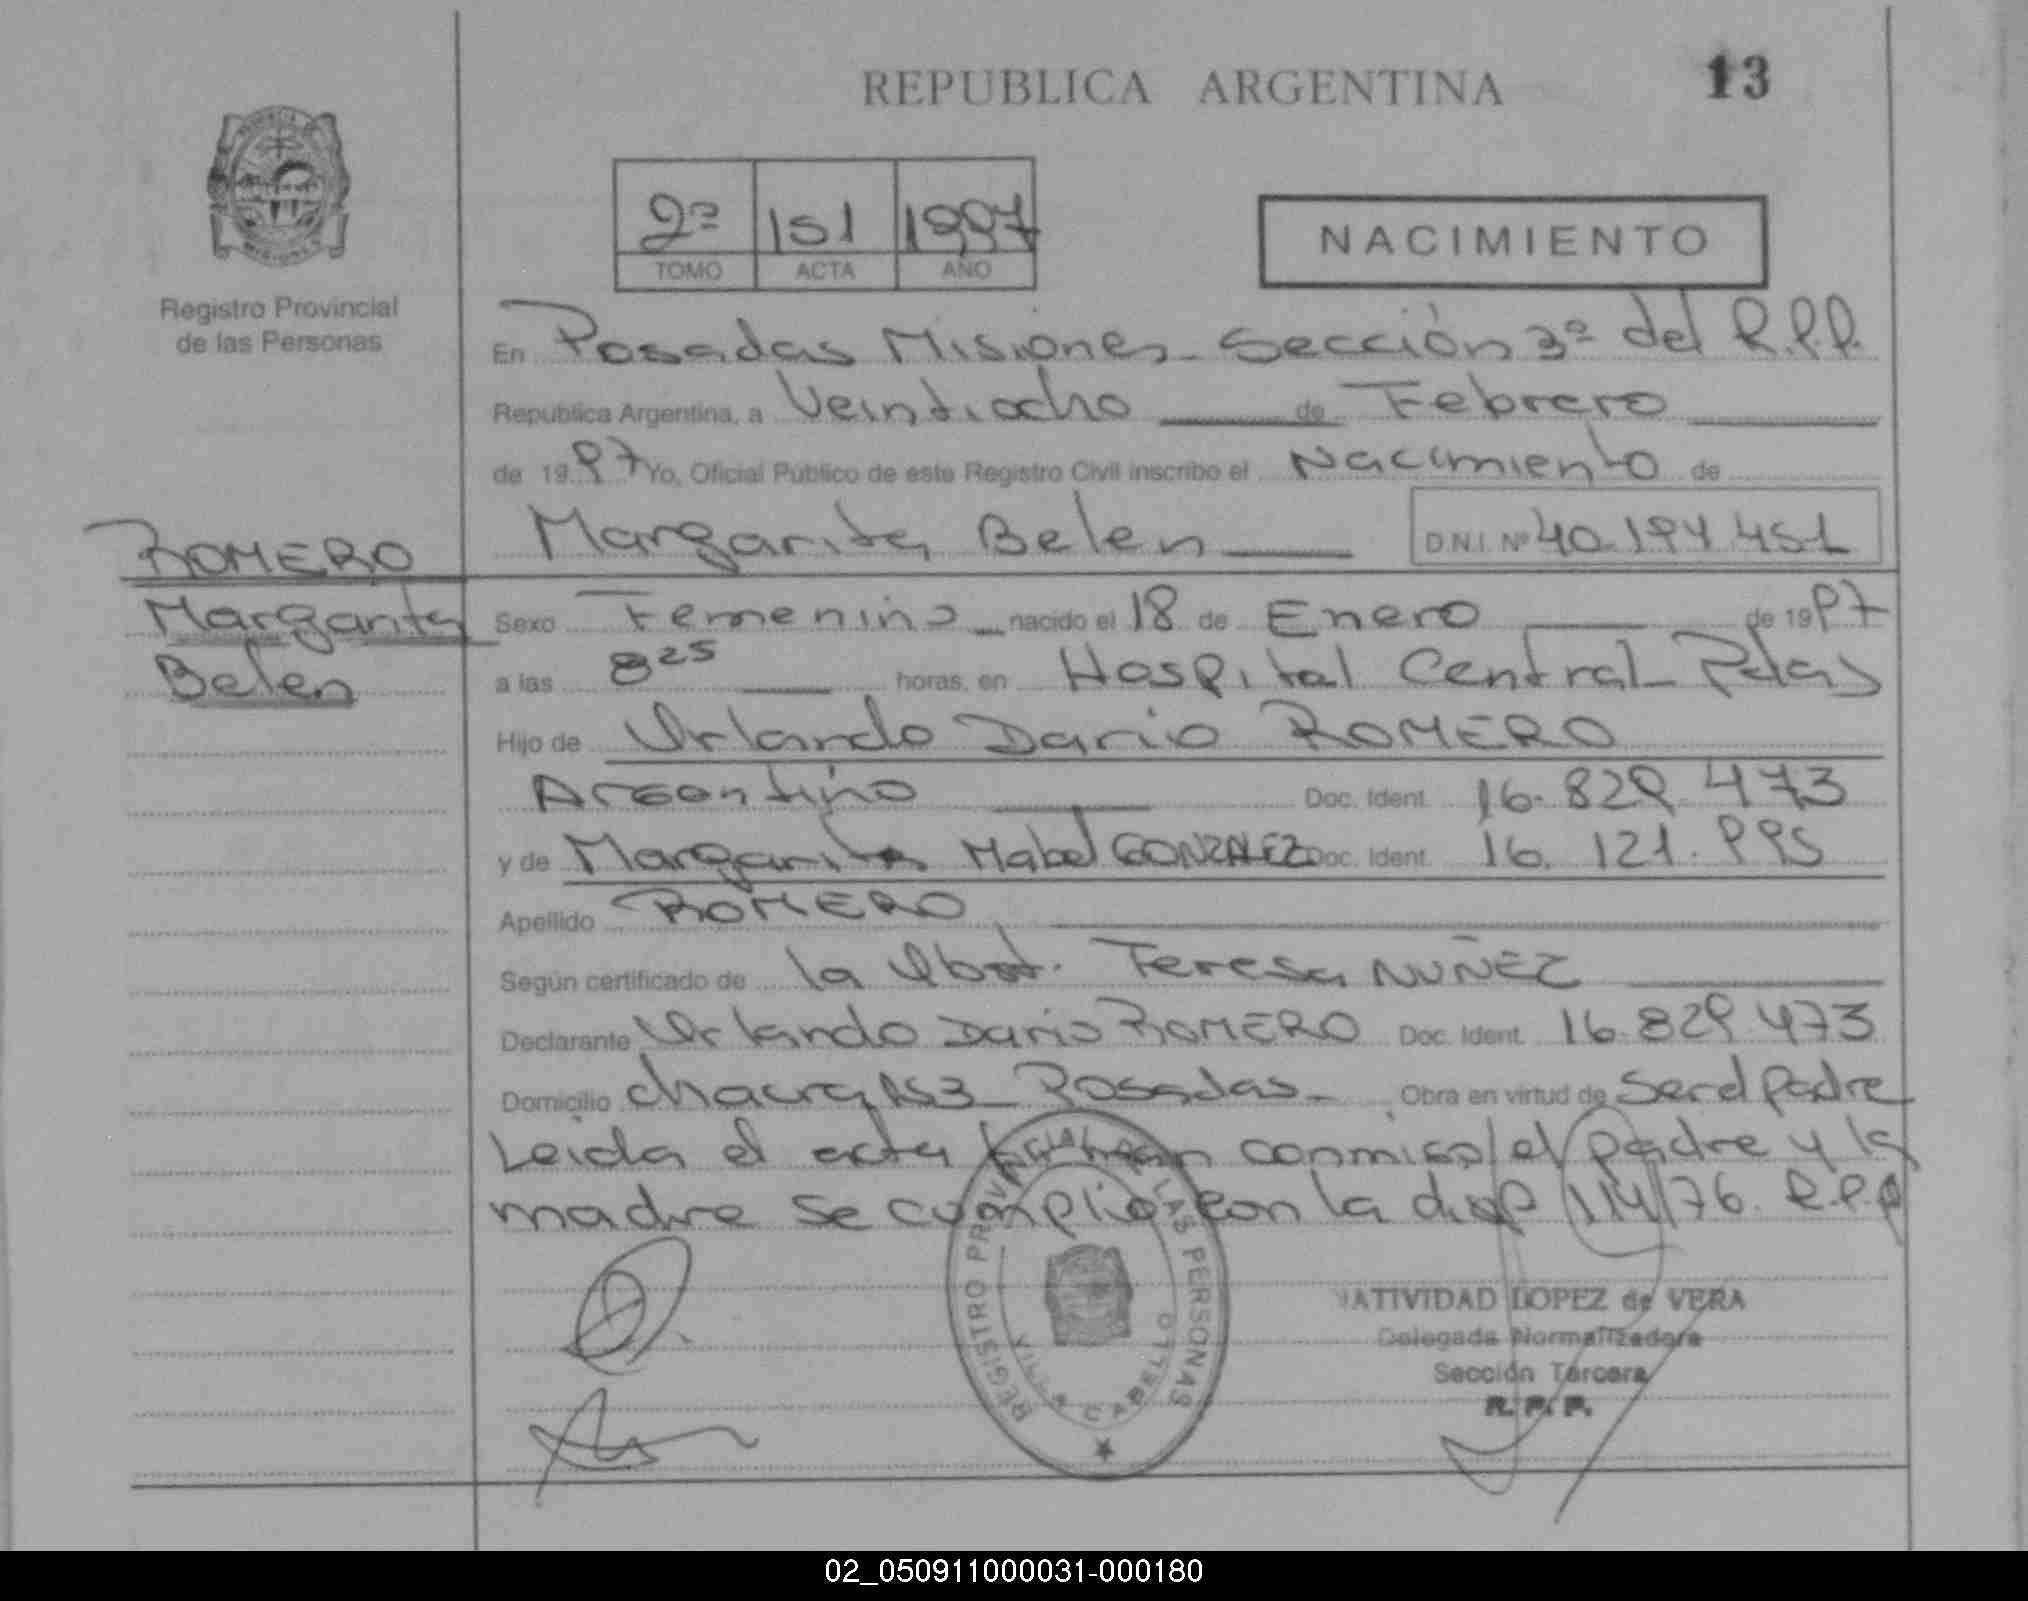 REPUBLICA ARGENTINA
13
2ª 151 1997
TOMO ACTA AÑO
NACIMIENTO
Registro Provincial
de las Personas
En Posadas Misiones - Sección 3ª del R.P.P.
Republica Argentina, a Veintiocho de Febrero
de 1997 Yo, Oficial Público de este Registro Civil inscribo el Nacimiento de
Margarita Belen D.N.I. Nº 40.194.451
ROMERO
Margarita
Belen
Sexo Femenino nacido el 18 de Enero de 1997
a las 8 25 horas, en Hospital Central Pdas
Hijo de Orlando Dario ROMERO
Argentino Doc. Ident. 16.829.473
y de Margarita Mabel GONZALEZ Doc. Ident. 16.121.995
Apellido ROMERO
Según certificado de la Obst. Teresa NUÑEZ
Declarante Orlando Dario ROMERO Doc. Ident. 16.829.473
Domicilio chacra 153 Posadas - Obra en virtud de Ser el padre
Leida el acta firman conmigo el padre y la
madre se cumplio con la disp 114/76. R.P.P
REGISTRO PROVINCIAL DE LAS PERSONAS
VILLA CABELLO
NATIVIDAD LOPEZ de VERA
Delegada Normalizadora
Sección Tercera
R. P. P.
02_050911000031-000180